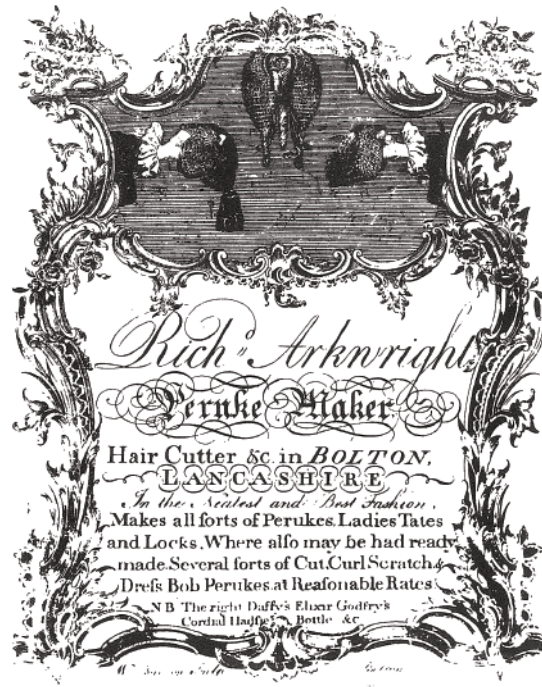 Richd. Arkwright,
Peruke Maker
Hair Cutter &c. in BOLTON,
LANCASHIRE
In the Neatest and Best Fashion.
Makes all ſorts of Perukes. Ladies Tates
and Locks. Where alſo may be had ready
made Several ſorts of Cut. Curl Scratch. &
Dreſs Bob Perukes. at Reaſonable Rates
N B The right Daffy's Elixir Godfry's
Cordial Bottle &c